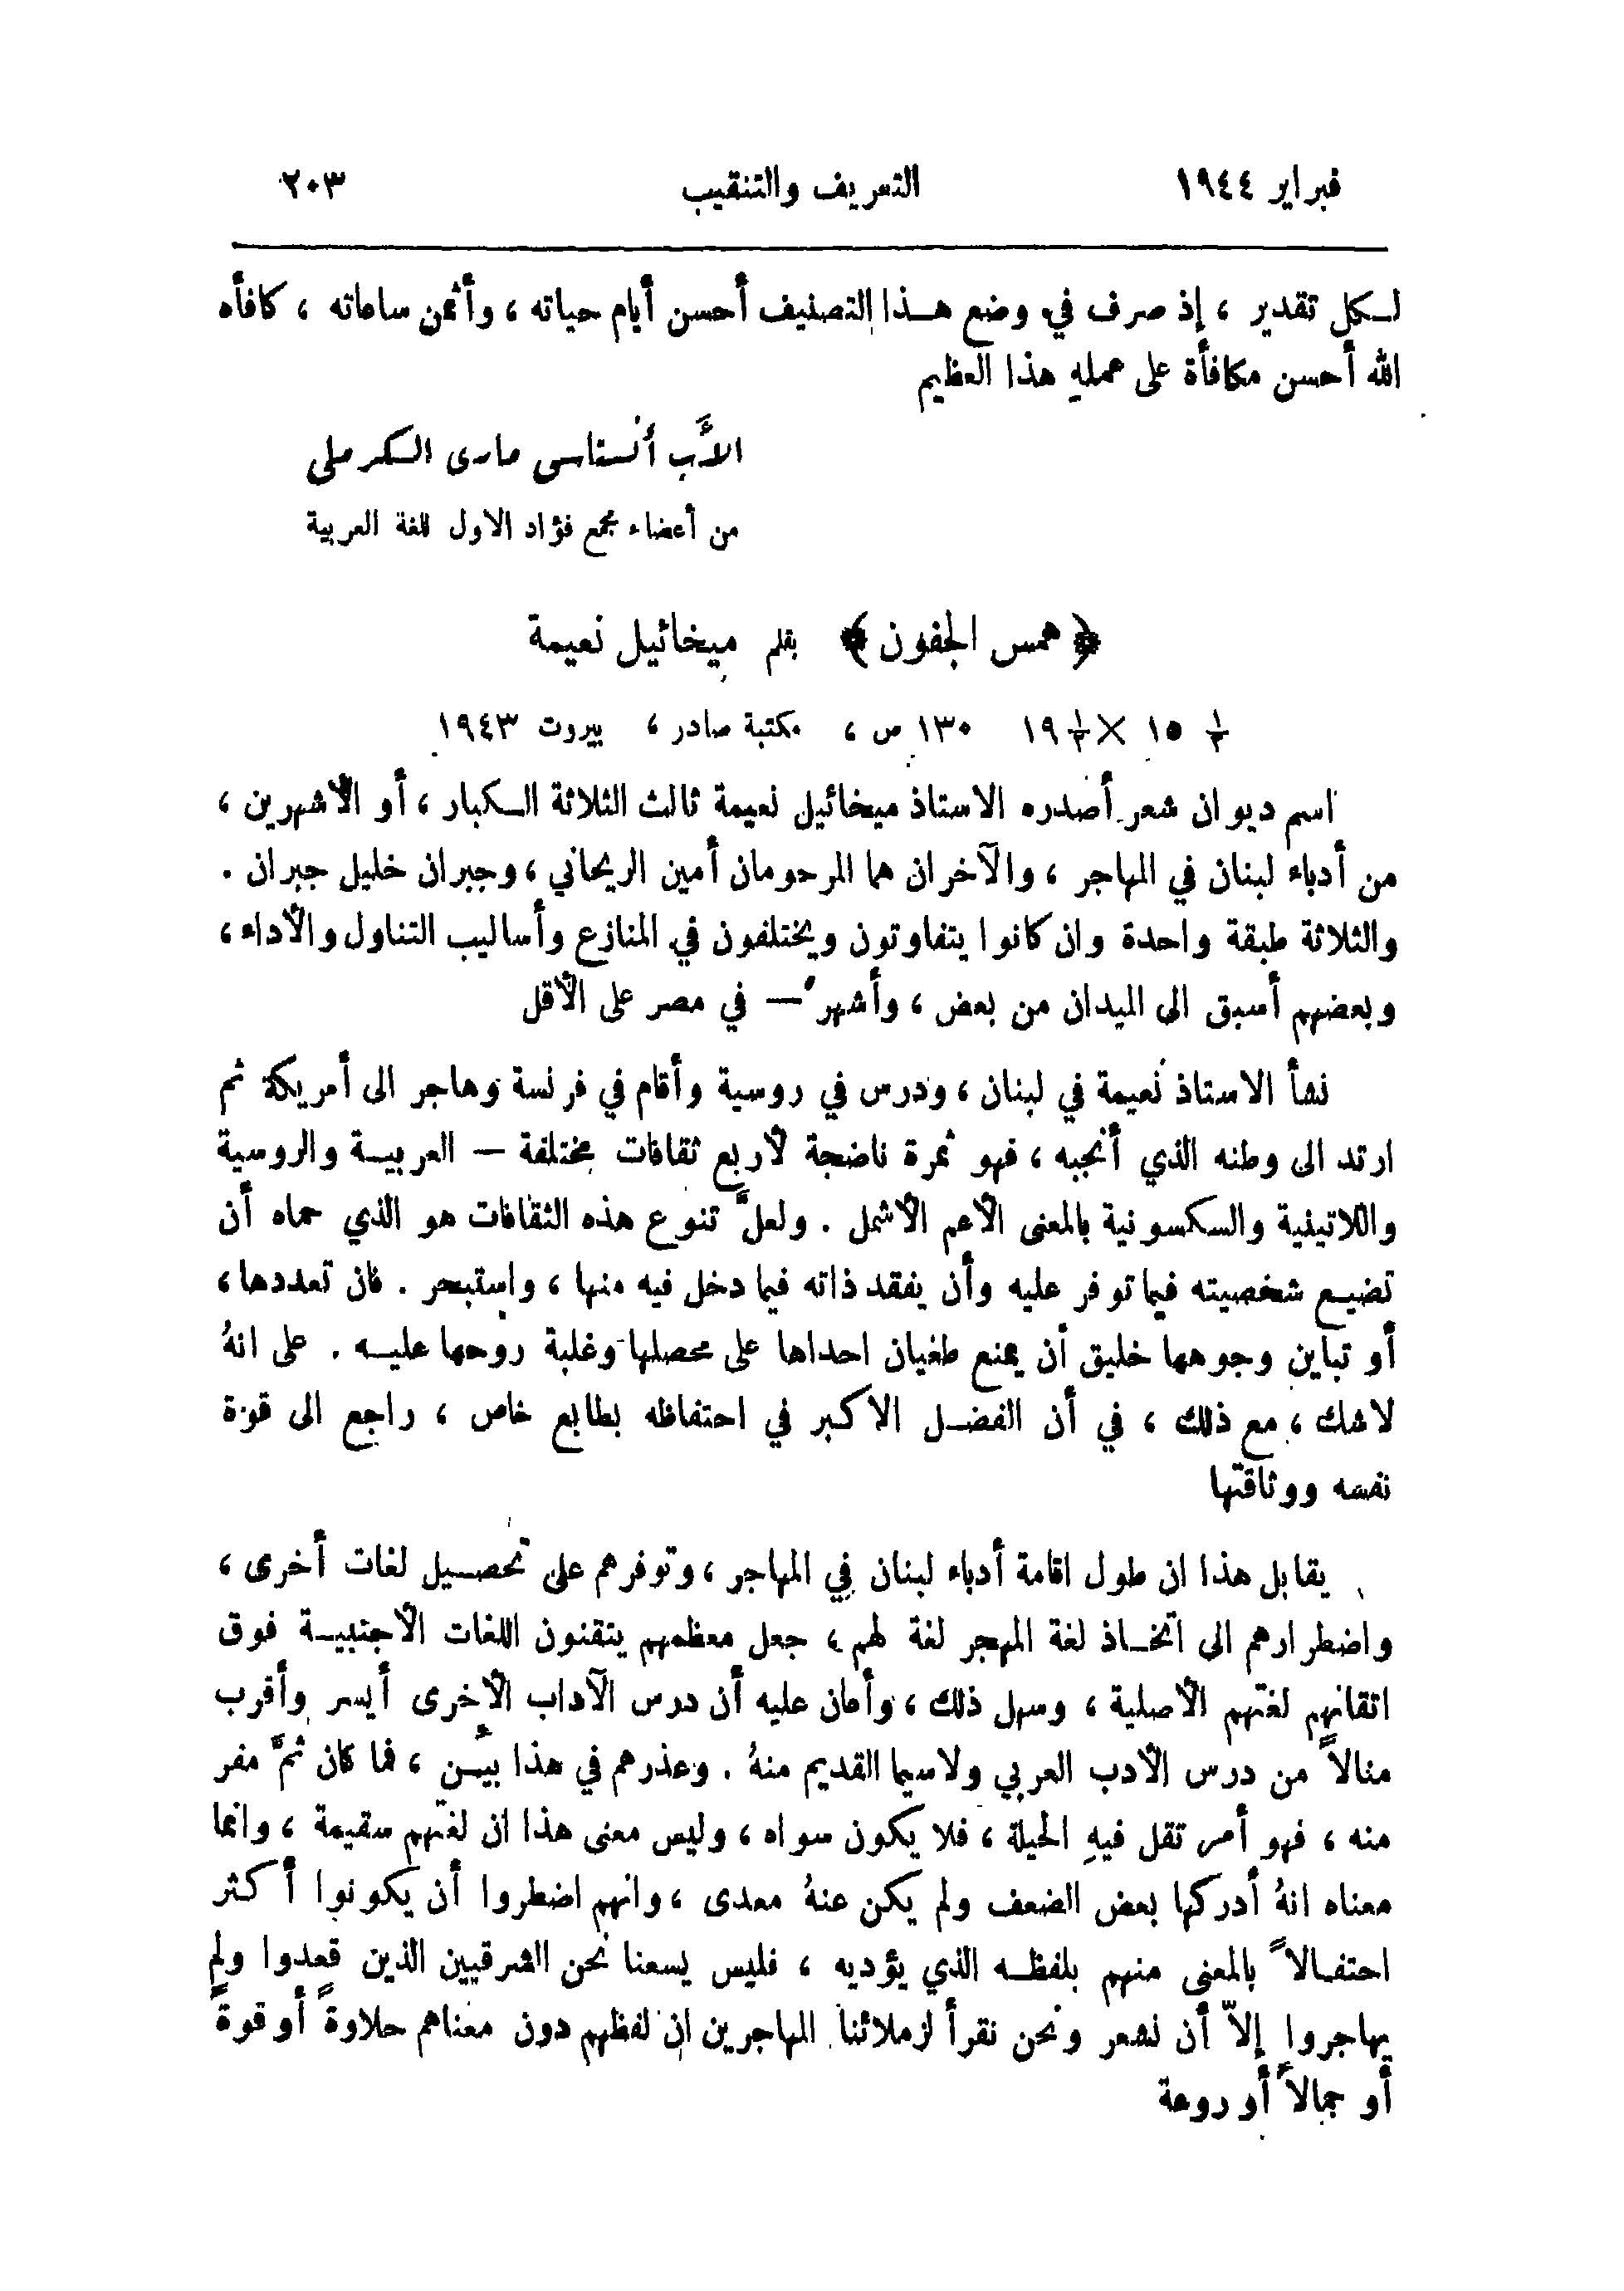 فبراير ١٩٤٤
التعريف والتنقيب
٢٠٣
لكل تقدير ، إذ صرف في وضع هذا التصنيف أحسن أيام حياته ، وأثمن ساعاته ، كافأه
الله أحسن مكافأة على عمله هذا العظيم
الأَب أنستاسى مارى الكرملي
من أعضاء مجمع فؤاد الاول للغة العربية
﴿ همس الجفون ﴾ بقلم ميخائيل نعيمة
١/٢ ١٥ × ١/٢ ١٩ ١٣٠ ص ، مكتبة صادر ، بيروت ١٩٤٣
اسم ديوان شعر أصدره الاستاذ ميخائيل نعيمة ثالث الثلاثة الكبار ، أو الأشهرين ،
من أدباء لبنان في المهاجر ، والآخران هما المرحومان أمين الريحاني ، وجبران خليل جبران .
والثلاثة طبقة واحدة وان كانوا يتفاوتون ويختلفون في المنازع وأساليب التناول والأداء ،
وبعضهم أسبق الى الميدان من بعض ، وأشهرُ — في مصر على الأقل
نشأ الاستاذ نعيمة في لبنان ، ودرس في روسية وأقام في فرنسة وهاجر الى أمريكة ثم
ارتد الى وطنه الذي أنجبه ، فهو ثمرة ناضجة لأربع ثقافات مختلفة — العربية والروسية
واللاتينية والسكسونية بالمعنى الأعم الأشمل . ولعلَّ تنوع هذه الثقافات هو الذي حماه أن
تضيع شخصيته فيما توفر عليه وأن يفقد ذاته فيما دخل فيه منها ، واستبحر . فان تعددها ،
أو تباين وجوهها خليق أن يمنع طغيان احداها على محصلها وغلبة روحها عليه . على انهُ
لاشك ، مع ذلك ، في أن الفضل الاكبر في احتفاظه بطابع خاص ، راجع الى قوة
نفسه ووثاقتها
يقابل هذا ان طول اقامة أدباء لبنان في المهاجر ، وتوفرهم على تحصيل لغات أخرى ،
واضطرارهم الى اتخاذ لغة المهجر لغة لهم ، جعل معظمهم يتقنون اللغات الأجنبية فوق
اتقانهم لغتهم الأصلية ، وسهل ذلك ، وأعان عليه أن درس الآداب الأخرى أيسر وأقرب
منالاً من درس الأدب العربي ولاسيما القديم منهُ . وعذرهم في هذا بيِّن ، فما كان ثمَّ مفر
منه ، فهو أمر تقل فيهِ الحيلة ، فلا يكون سواه ، وليس معنى هذا ان لغتهم سقيمة ، وانما
معناه انهُ أدركها بعض الضعف ولم يكن عنهُ معدى ، وانهم اضطروا أن يكونوا أكثر
احتفالاً بالمعنى منهم بلفظه الذي يؤديه ، فليس يسعنا نحن الشرقيين الذين قعدوا ولم
يهاجروا إلاّ أن نشعر ونحن نقرأ لزملائنا المهاجرين ان لفظهم دون معناهم حلاوةً أو قوةً
أو جمالاً أو روعة